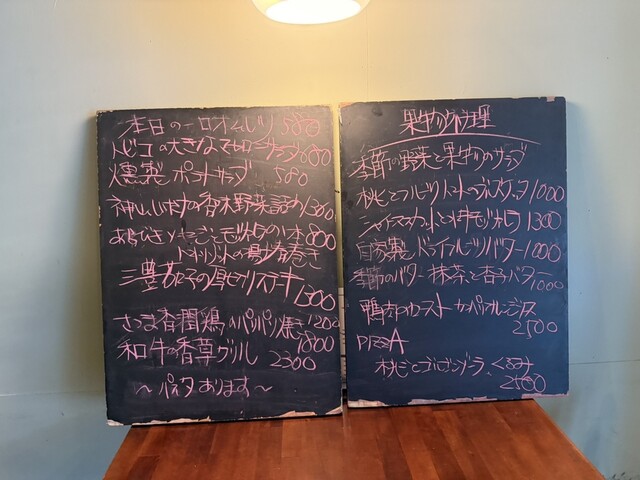 本日の一口オムレツ 580
トビコの大きなマカロニサラダ 680
燻製ポテトサラダ 580
香味野菜詰め 1300
あらびきソーセージとモッツァレラの 800
ドライトマトの揚げ春巻き
三豊なすの厚切りステーキ
1300
さつま香潤鶏のパリパリ焼き 1200
1800
和牛の香草グリル 2300
〜パスタあります〜
果物料理
季節の野菜と果物のサラダ
桃とフルーツトマトのブルスケッタ 1000
シャインマスカットと水牛モッツァレラ 1300
自家製ドライフルーツバター 1000
季節のバター 抹茶と杏子バター
1000
鴨肉のロースト カシスオレンジソース
2500
PIZZA
桃とゴルゴンゾーラ、くるみ
2500